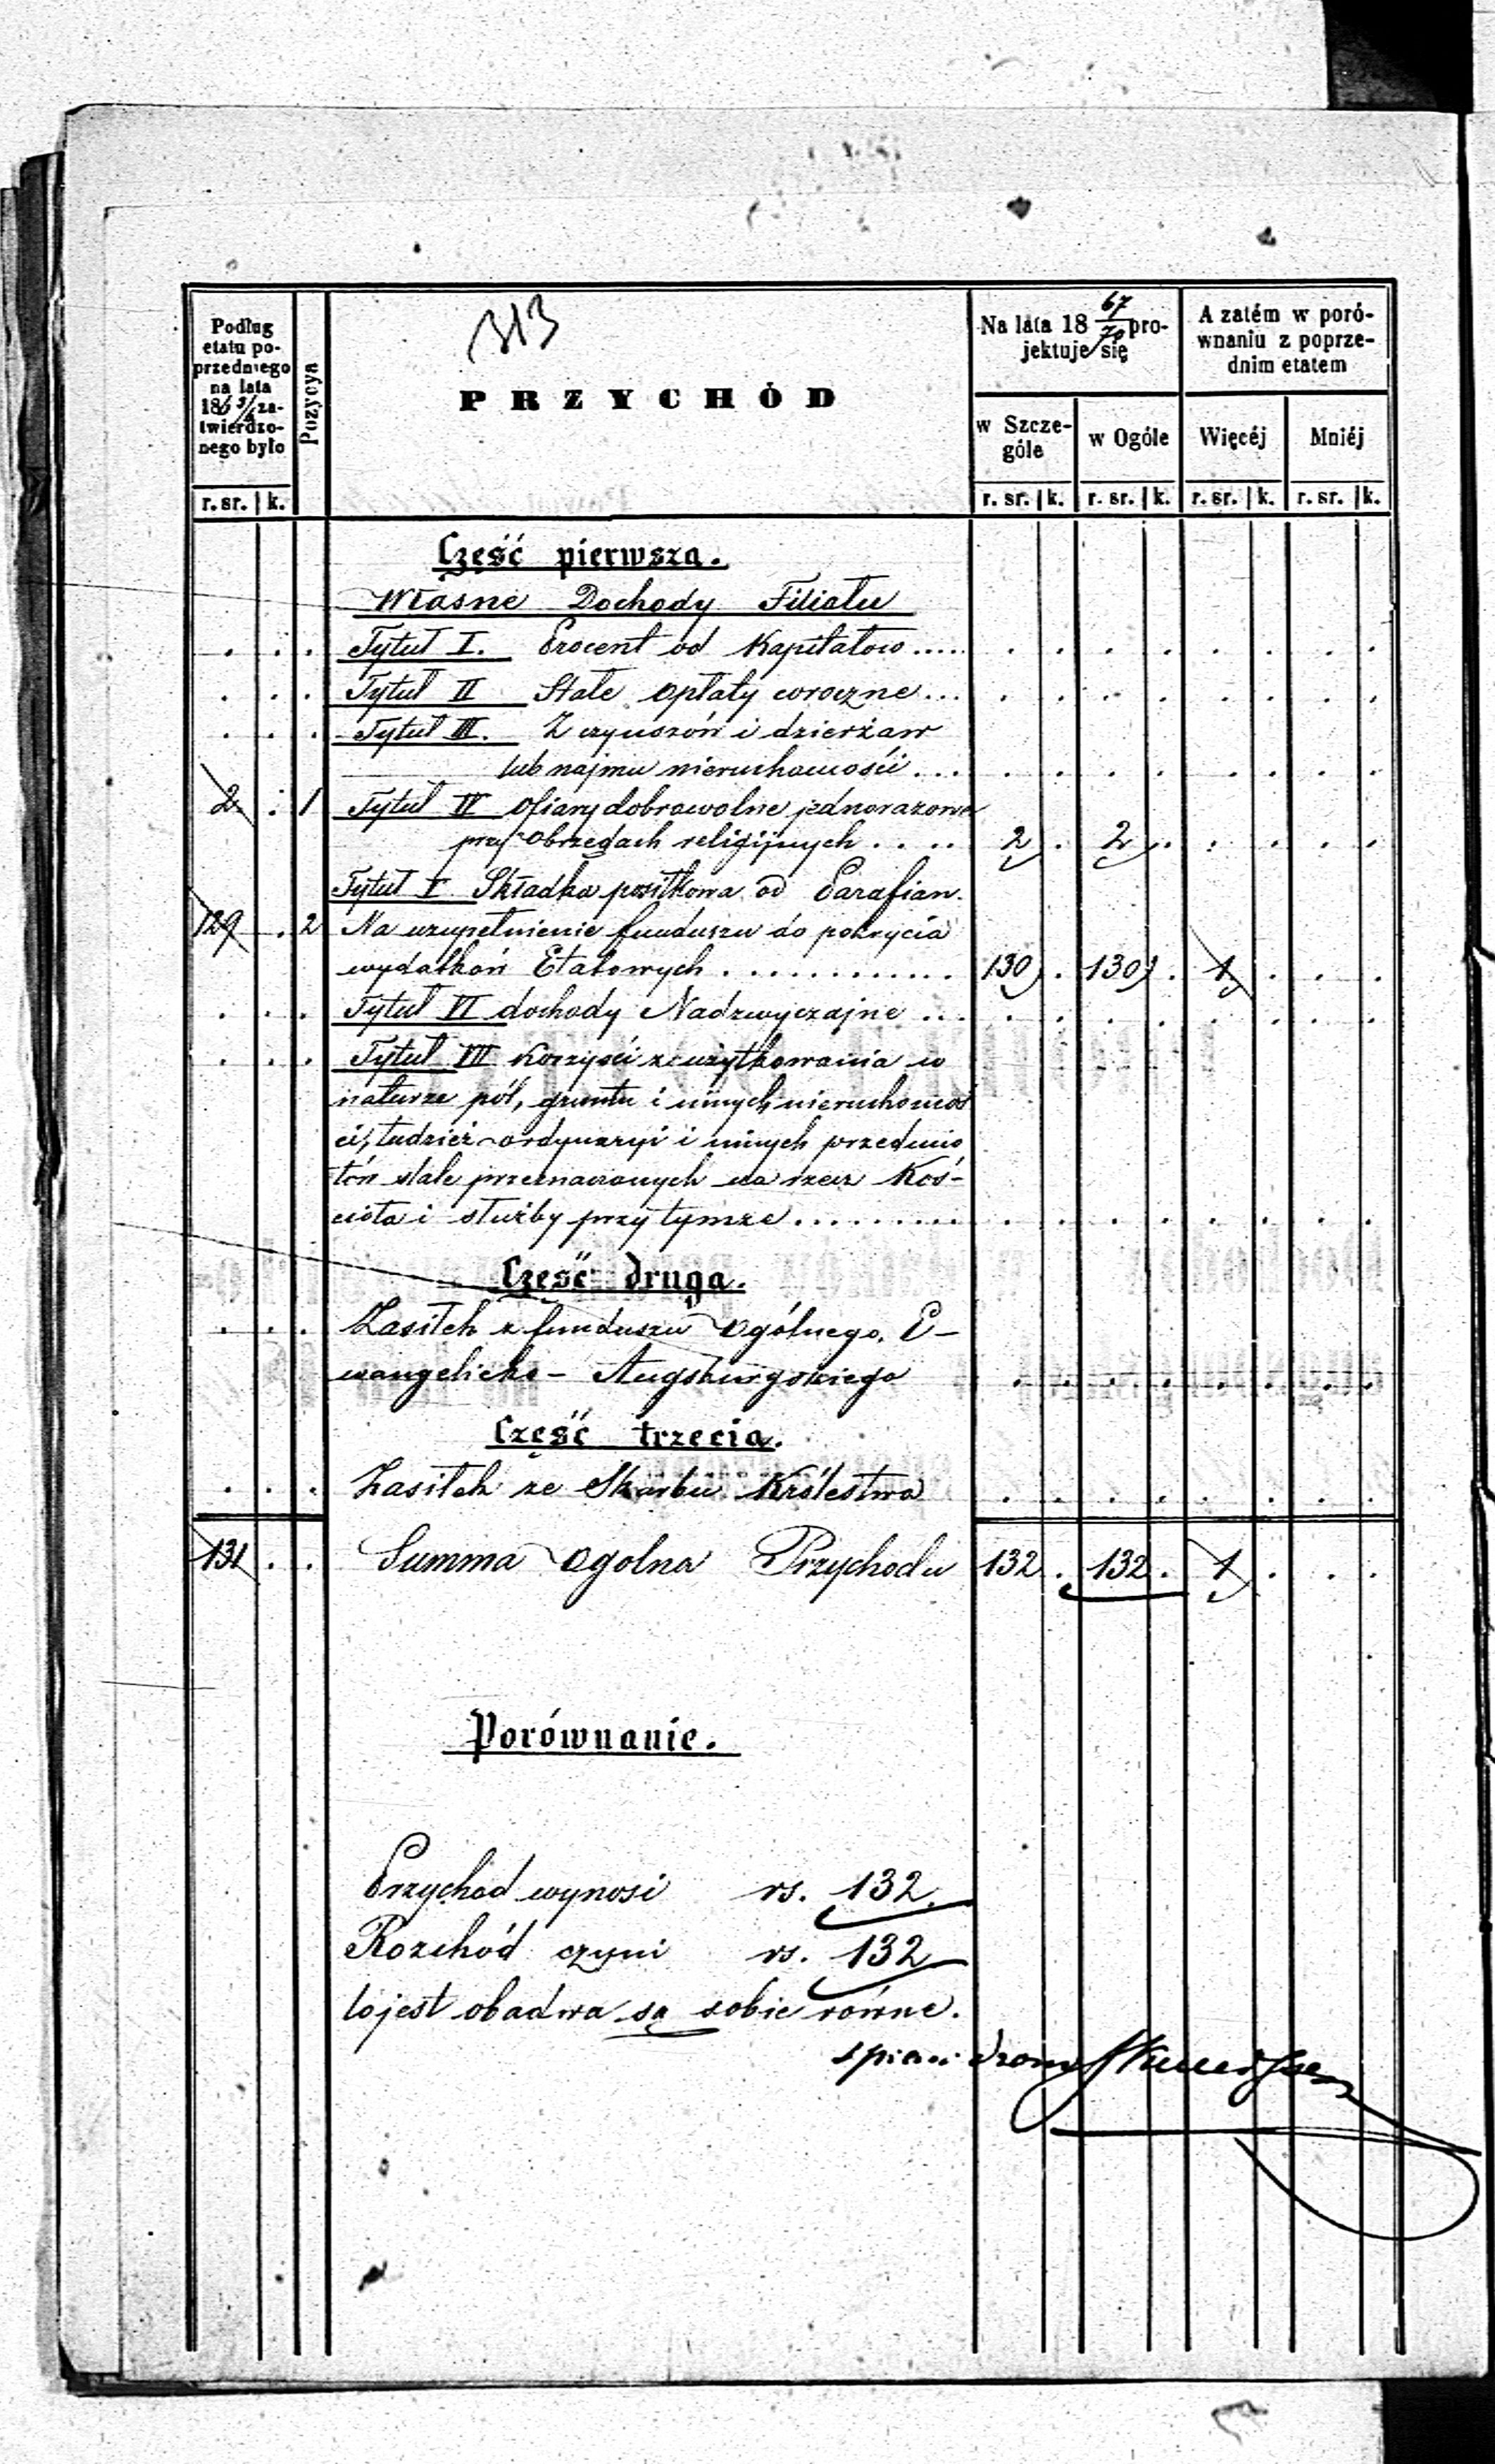 313
Podług
etatu po-
przedniego
na lata
186 3/ za-
twierdzo-
nego było
Pozycya
PRZYCHÓD
Na lata 18 67/70 pro-
jektuje się
A zatém w poró-
wnaniu z poprze-
dnim etatem
w Szcze-
góle
w Ogóle
Więcéj
Mniéj
r. sr. k. r. sr. k. r. sr. k. r. sr. k. r. sr. k.
Część pierwsza.
Własne Dochody Filiału
. . . Tytuł I. Procent od Kapitałow ..... . . . . . . . .
. . . Tytuł II Stałe opłaty wroczne ... . . . . . . . .
. . . Tytuł III. Z czynszów i dzierżaw
lub najmu nieruchomości .... . . . . . . . .
2 . 1 Tytuł IV Ofiary dobrowolne jednorazowe
przy obrzędach religijnych . . .. 2 . 2 . . . . .
Tytuł V Składka posiłkowa od Parafian.
129 . 2 Na uzupełnienie funduszu do pokrycia
wydatków Etatowych ............ 130 . 130 . 1 . . .
. . . Tytuł VI dochody Nadzwyczajne ... . . . . . . . .
. . . Tytuł VII Korzyści z użytkowania w
naturze pól, gruntu i innych nieruchomoś
ci, tudzież ordynaryi i innych przedmio
tów stale przeznaczonych na rzecz Koś-
cioła i służby przy tymże ......... . . . . . . . .
Część druga.
. . . Zasiłek z funduszu Ogólnego, E-
wangelicko - Augsburgskiego . . . . . . . .
Część trzecia.
. . . Zasiłek ze Skarbu Królestwa . . . . . . . .
131 . . Summa Ogolna Przychodu 132 . 132 . 1 . . .
Porównanie.
Przychód wynosi rs. 132.
Rozchód czyni rs. 132
to jest obadwa są sobie równe.